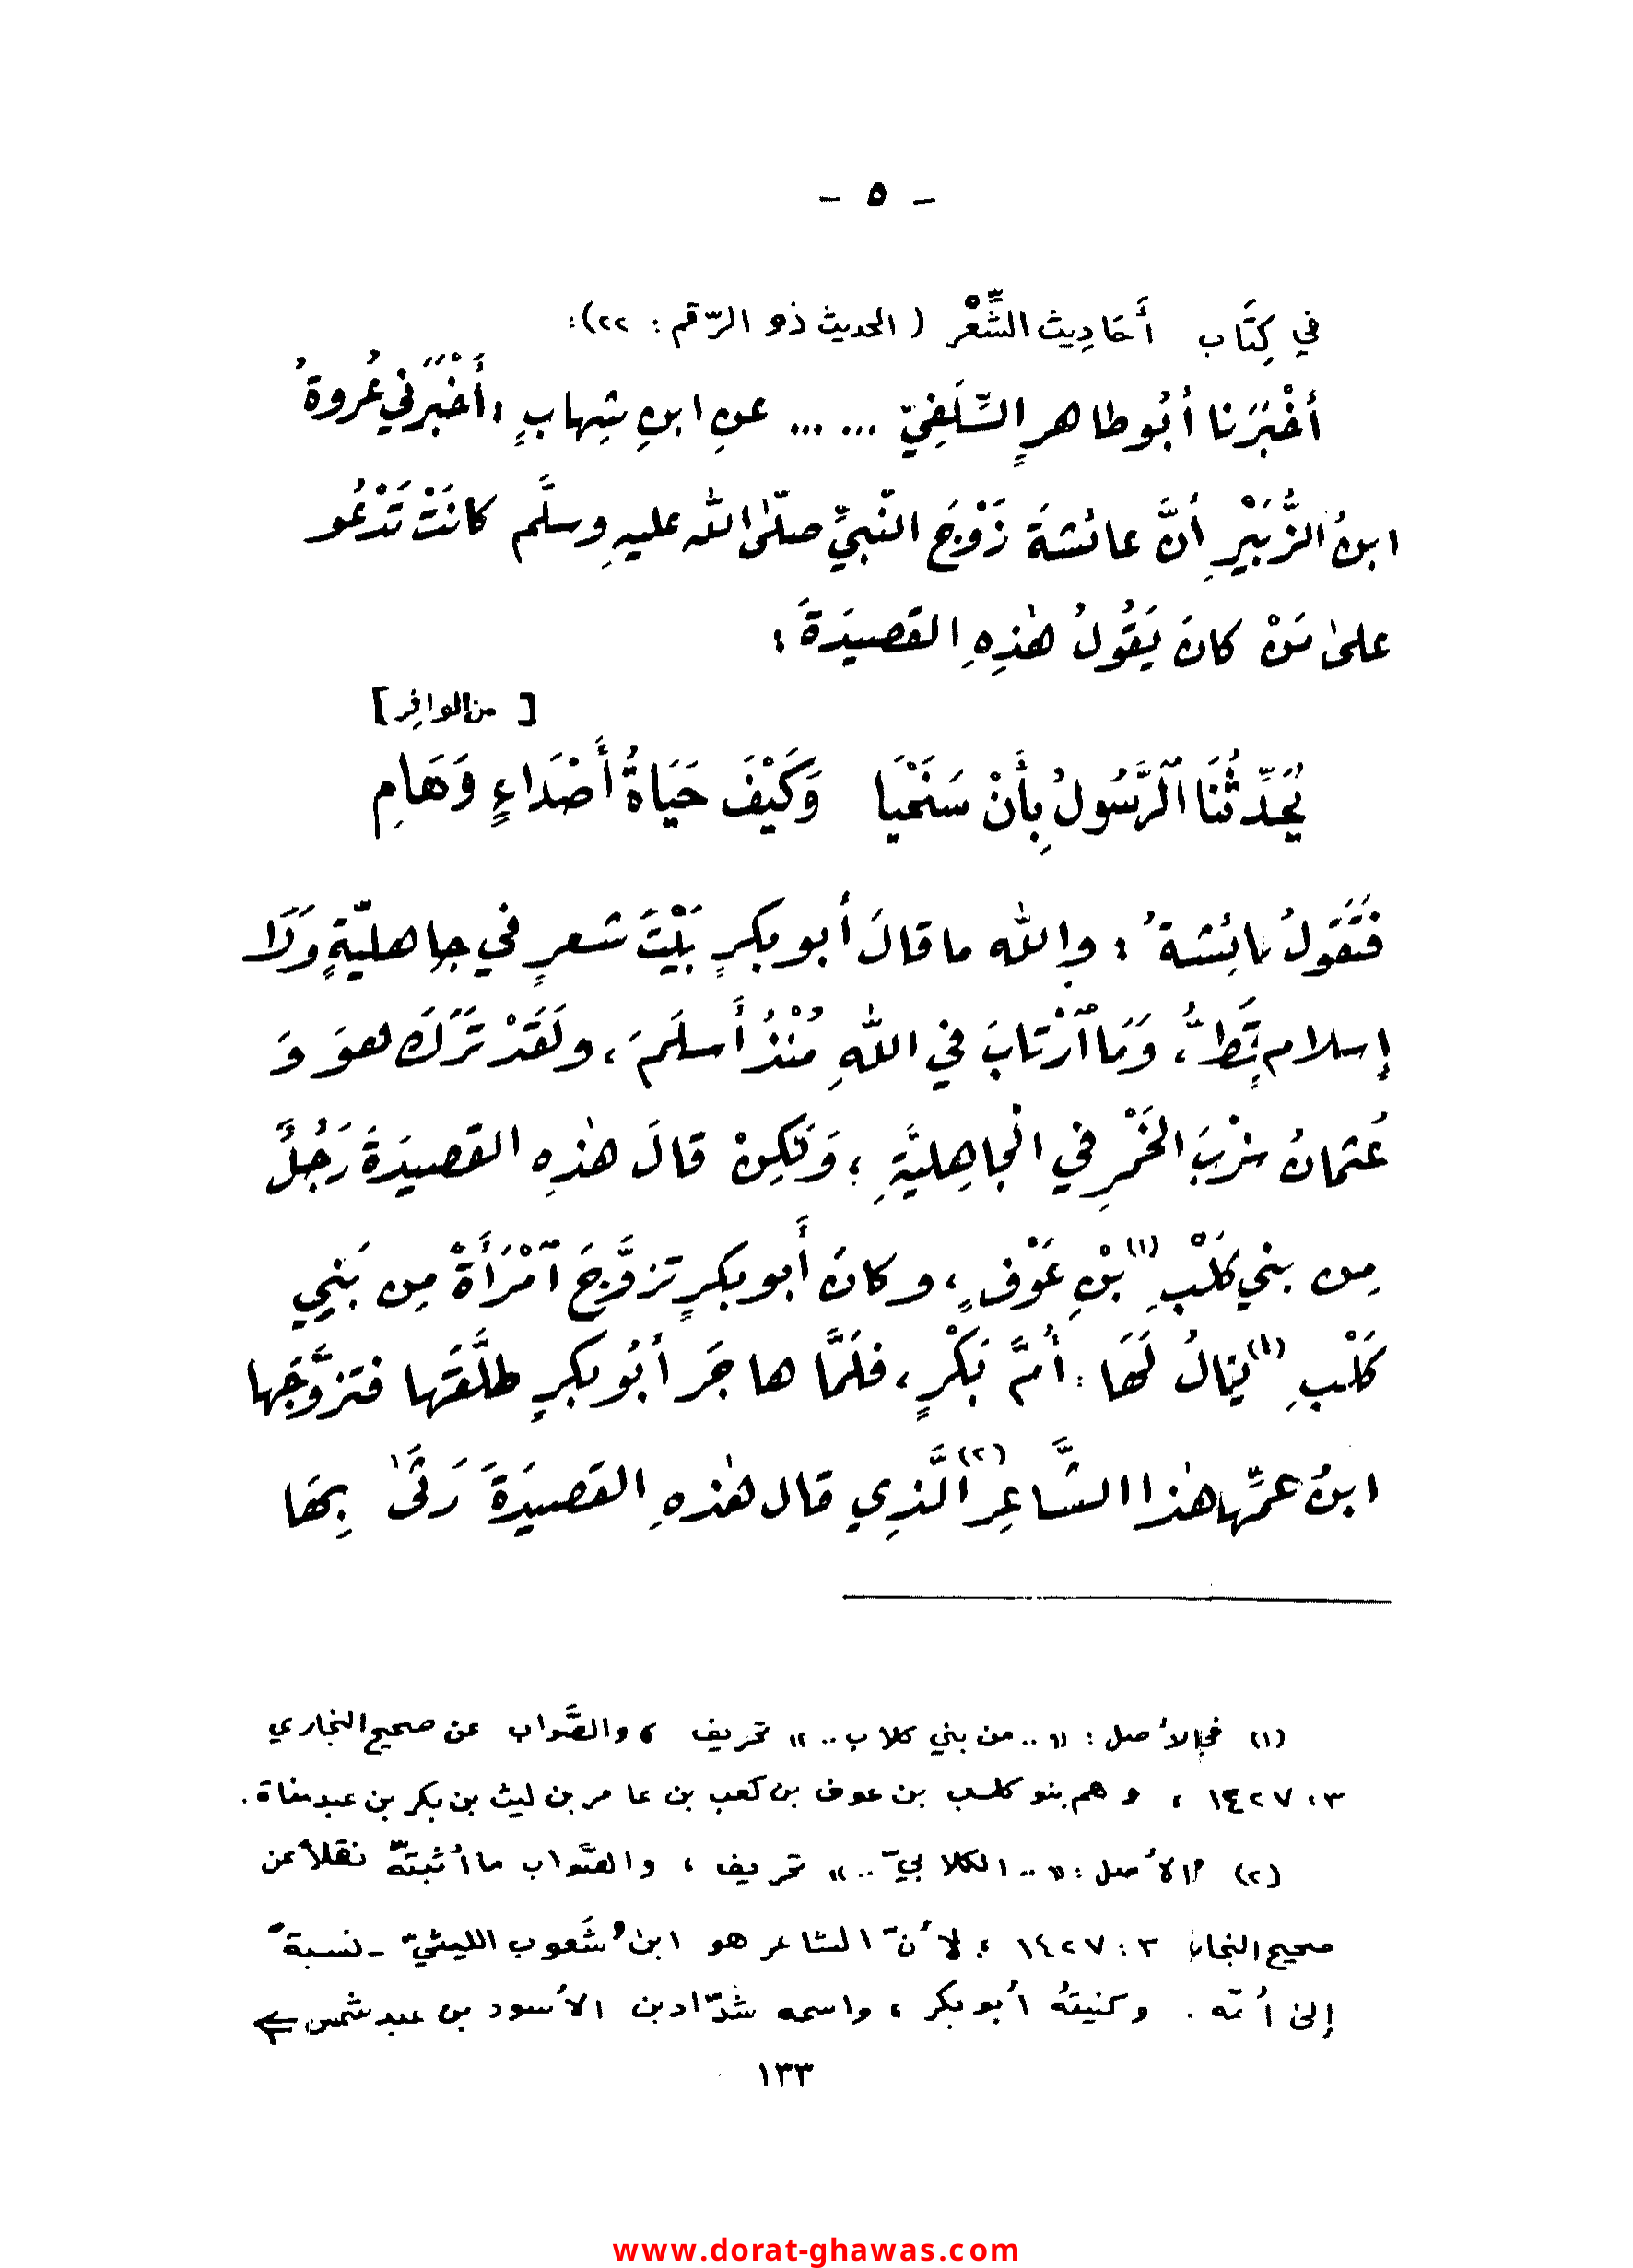 - ٥ -
في كِتَاب أَحَادِيث الشِّعْر ( الحديث ذو الرّقم : ٢٢):
أخْبَرَنا أبُو طاهرٍ السِّلَفِيّ ... ... عنِ ابنِ شِهابٍ ، أَخْبَرَني عُروةُ
ابنُ الزُّبَيْرِ أنَّ عائشةَ زَوْجَ النّبيِّ صلّى الله عليهِ وسلَّم كانَتْ تَدْعُو
علىٰ مَنْ كانَ يَقُولُ هٰذِهِ القصيدَةَ :
[ من الوافِر ]
يُحَدِّثُنَا ٱلرَّسُولُ بِأَنْ سَنَحْيَا وَكَيْفَ حَيَاةُ أَصْدَاءٍ وَهَامِ
فَتَقولُ عائِشةُ : والله ما قالَ أبو بكرٍ بَيْتَ شعرٍ في جاهليّةٍ وَلَا
إسلامٍ قَطُّ ، وَمَا ٱرْتابَ في اللهِ مُنْذُ أَسلَمَ ، ولَقَدْ تَرَكَ هوَ وَ
عُثمانُ شرْبَ الخَمْرِ في الجاهِليَّةِ ؛ وَلٰكِنْ قالَ هٰذِه القصيدَةَ رَجُلٌ
مِن بني كَلْبِ (١) بْنِ عَوْفٍ ، وكانَ أَبو بكرٍ تزوَّجَ ٱمْرَأَةً مِن بَنِي
كَلْبِ (١) يقالُ لَهَا : أُمَّ بَكْرٍ ، فلَمَّا هاجَر أبُو بكرٍ طلَّقَها فتزوَّجَها
ابنُ عمِّها هٰذا الشَّاعِرُ (٢) الَّذِي قال هٰذهِ القصيدَةَ رَثَىٰ بِهَا
(١) في الأصل : « .. من بني كلاب .. » تحريف ، والصَّواب عن صحيح البخاري
٣ : ١٤٢٧ ، وهم بنو كلب بن عوف بن كعب بن عامر بن ليث بن بكر بن عبد مناة .
(٢) الأصل : « .. الكلابيّ .. » تحريف ، والصَّواب ما أثبتّه نقلاً عن
صحيح البخاري ٣ : ١٤٢٧ ؛ لأنّ الشاعر هو ابنُ شَعوب الليثيّ - نسبةً
إلى أمّه . وكنيتهُ أبو بكر ، واسمه شدّاد بن الأسود بن عبد شمس ⇐
١٣٣
www.dorat-ghawas.com